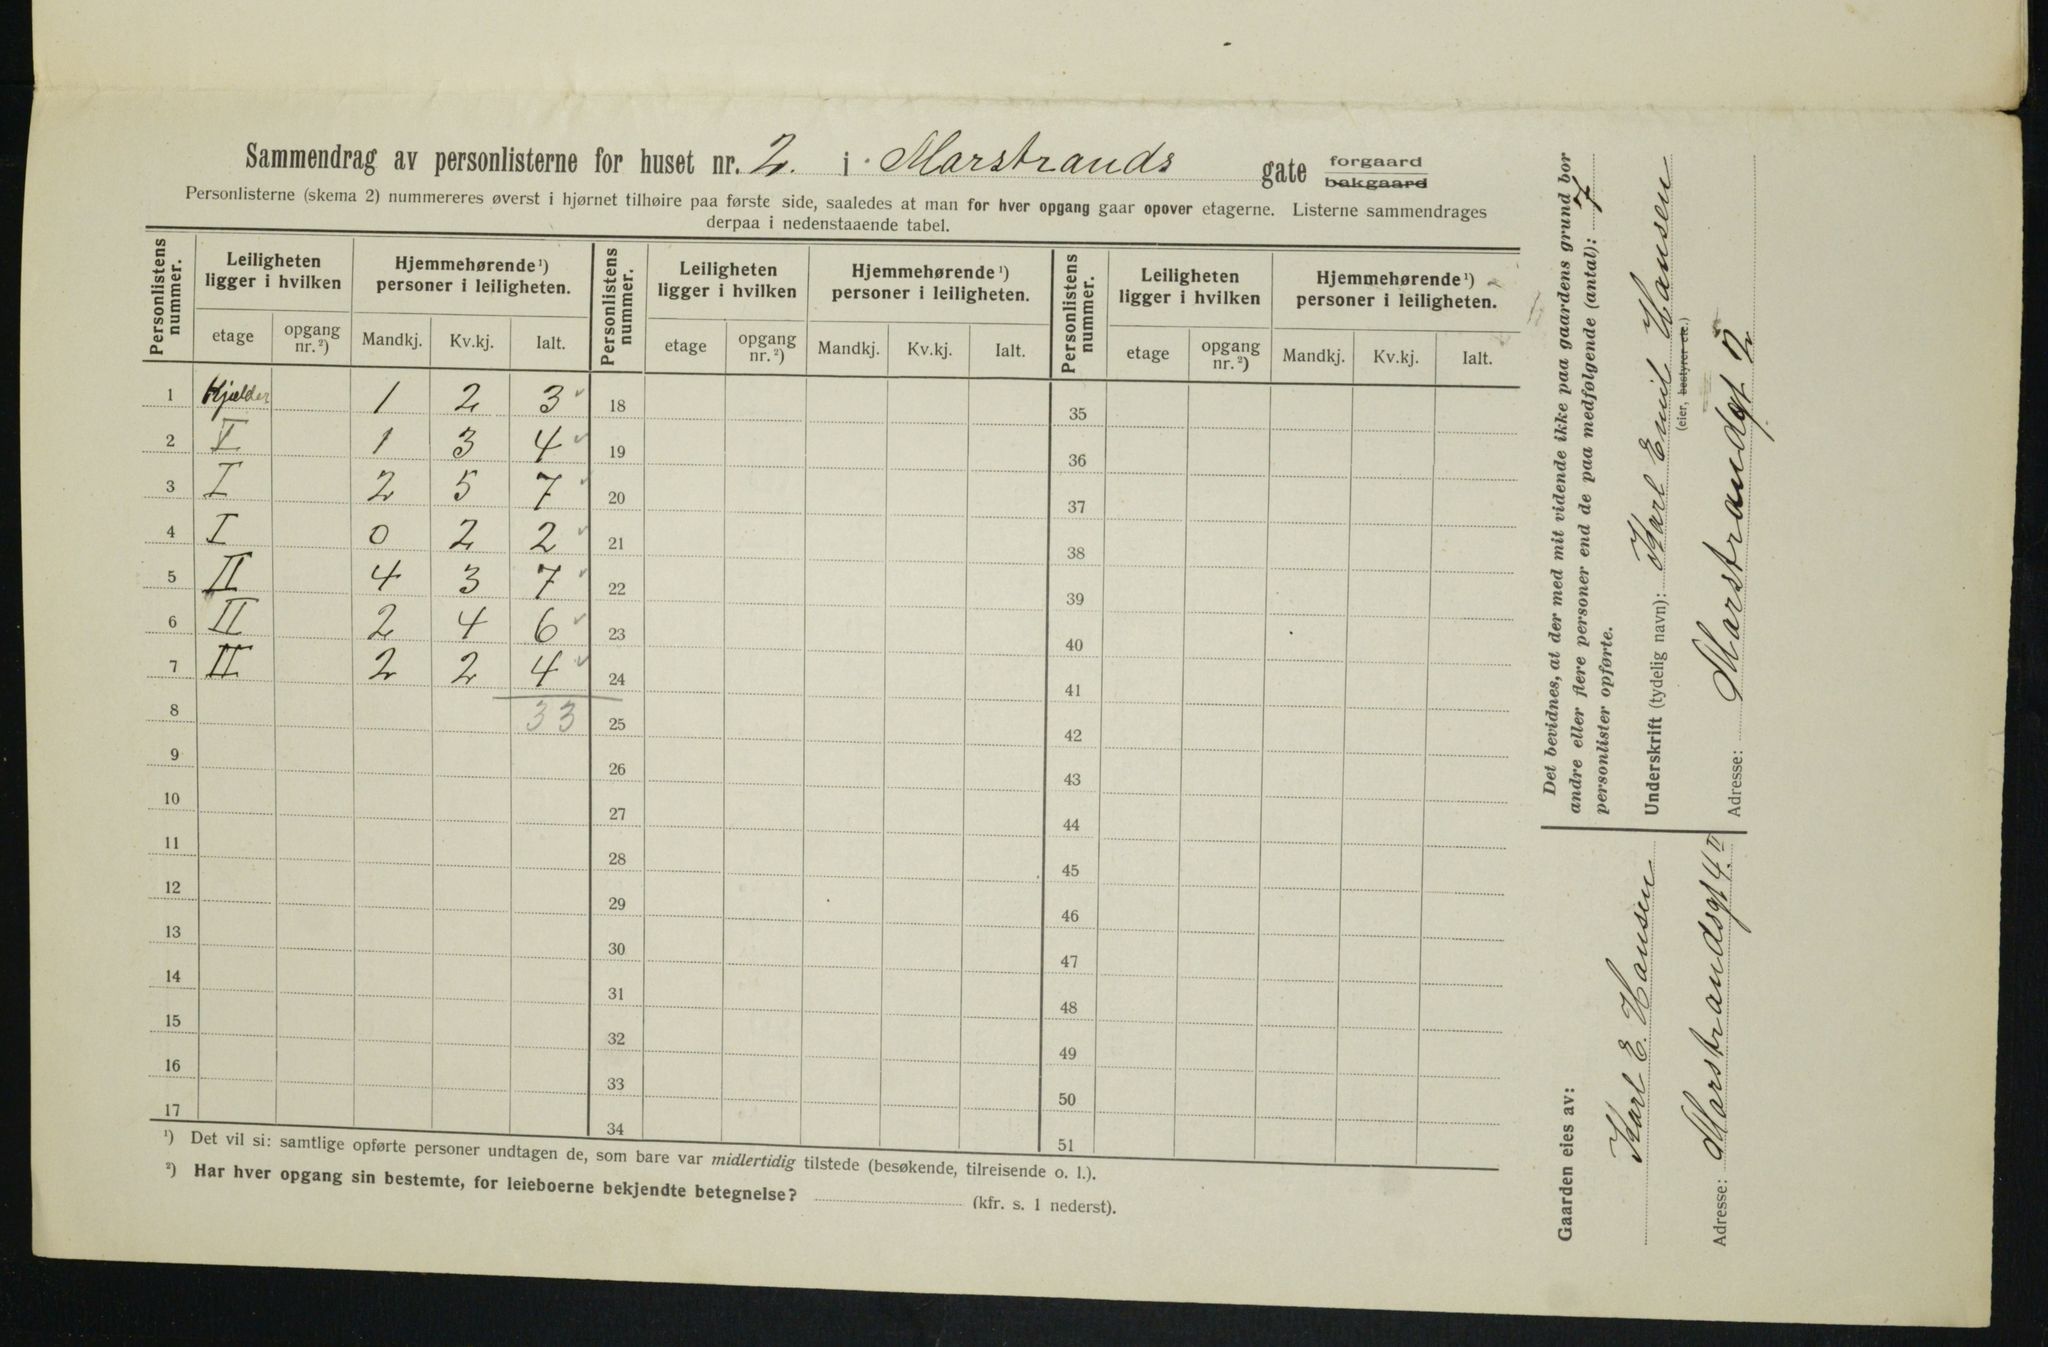 Sammendrag av personlisterne for huset nr. 2. i Marstrands gate forgaard
bakgaard
Personlisterne (skema 2) nummereres øverst i hjørnet tilhøire paa første side, saaledes at man for hver opgang gaar opover etagerne. Listerne sammendrages
derpaa i nedenstaaende tabel.
Personlistens nummer. Leiligheten ligger i hvilken Hjemmehørende ¹) personer i leiligheten. Personlistens nummer. Leiligheten ligger i hvilken Hjemmehørende ¹) personer i leiligheten. Personlistens nummer. Leiligheten ligger i hvilken Hjemmehørende ¹) personer i leiligheten.
etage opgang nr. ²) Mandkj. Kv.kj. Ialt. etage opgang nr. ²) Mandkj. Kv.kj. Ialt. etage opgang nr. ²) Mandkj. Kv.kj. Ialt.
1 Kjælder 1 2 3 18 35
2 I 1 3 4 19 36
3 I 2 5 7 20 37
4 I 0 2 2 21 38
5 II 4 3 7 22 39
6 II 2 4 6 23 40
7 II 2 2 4 24 41
8 33 25 42
9 26 43
10 27 44
11 28 45
12 29 46
13 30 47
14 31 48
15 32 49
16 33 50
17 34 51
¹) Det vil si: samtlige opførte personer undtagen de, som bare var midlertidig tilstede (besøkende, tilreisende o. l.).
²) Har hver opgang sin bestemte, for leieboerne bekjendte betegnelse? (kfr. s. 1 nederst).
Det bevidnes, at der med mit vidende ikke paa gaardens grund bor
andre eller flere personer end de paa medfolgende (antal): 7
personlister opførte.
Underskrift (tydelig navn): Karl Emil Hansen
(eier, bestyrer etc.)
Adresse: Marstrandgt 2
Gaarden eies av:
Karl E. Hansen
Adresse: Marstrandsgt 4 II